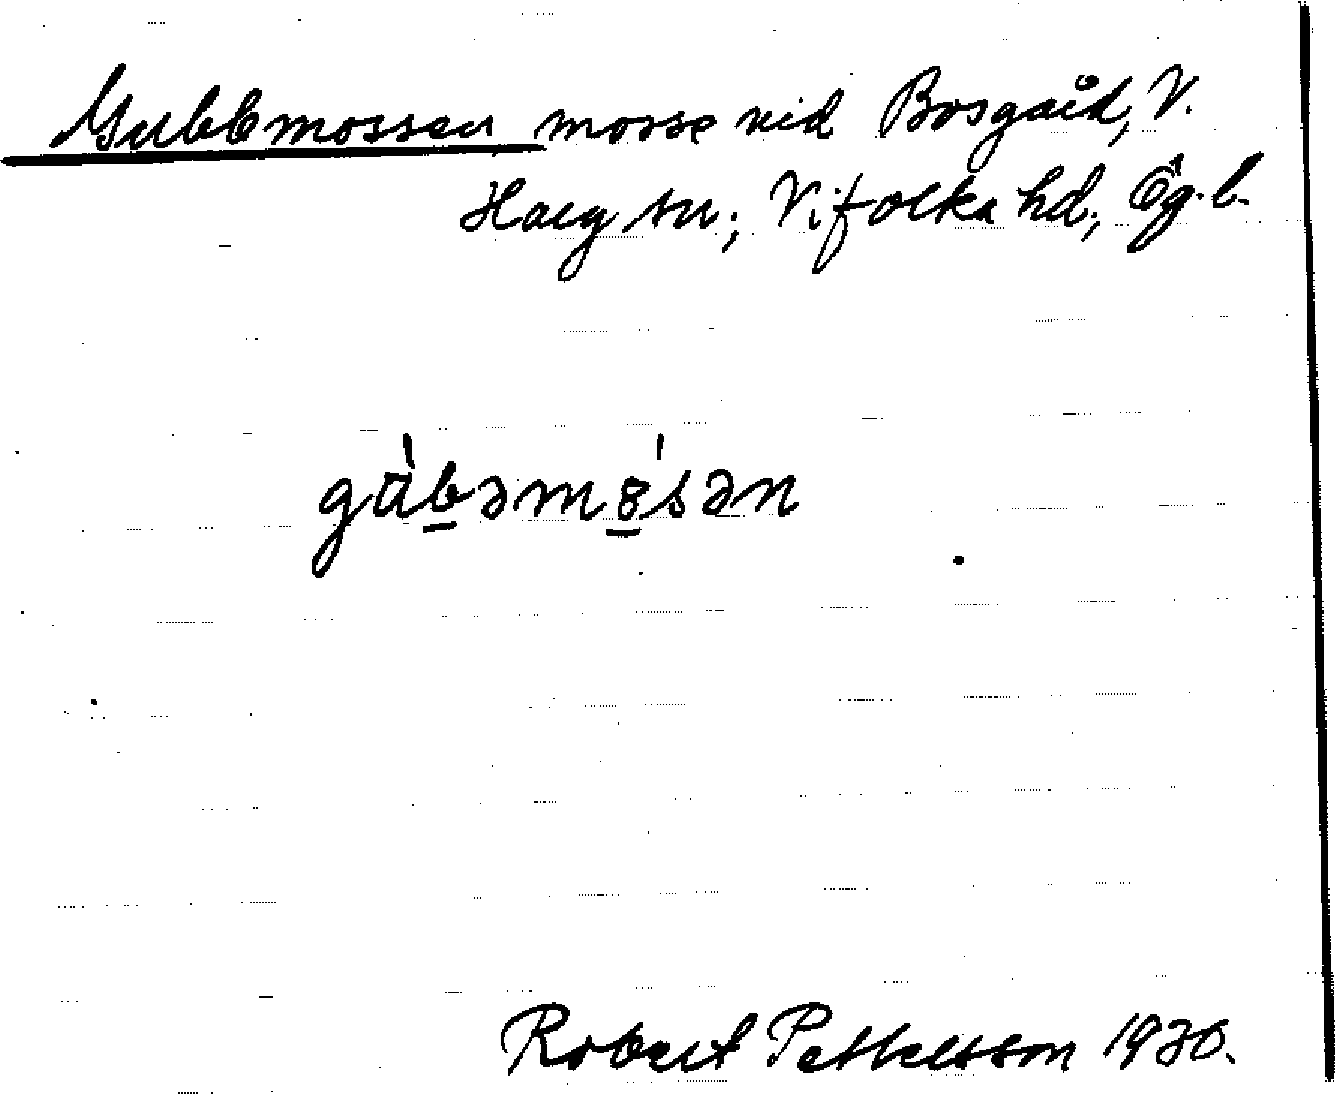 Gubbmossen mosse vid Bosgård, V.
Harg sn; Vifolka hd, Ög. l.
gu̍b̲əmo̲̍sən
Robert Pettersson 1930.